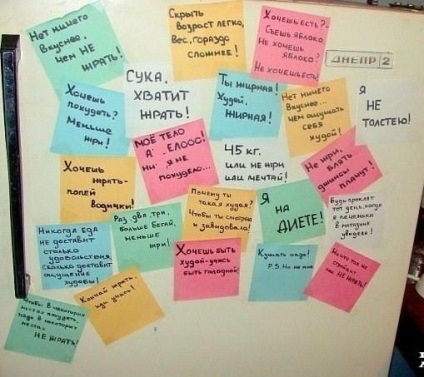 Нет ничего
вкуснее,
чем НЕ
ЖРАТЬ!
Скрыть
возраст легко,
Вес, гораздо
сложнее!
Хочешь есть?
Съешь яблоко.
Не хочешь
яблоко?
Не хочешь есть!
ДНЕПР 2
Хочешь
похудеть?
Меньше
жри!
СУКА,
ХВАТИТ
ЖРАТЬ!
Ты жирная!
Худей,
ЖИРНАЯ!
Нет ничего
вкуснее...
чем ощущать
себя
худой!
Я
НЕ
ТОЛСТЕЮ!
МОЁ ТЕЛО
я не
похудею...
45 кг.
или не жри
или мечтай!
Не жри,
БЛЯТЬ
джинсы
плачут!
Хочешь
жрать-
попей
водички!
Почему ты
такая худая?
Чтобы ты смотрела
и завидовала!
Я
на
ДИЕТЕ!
Будь проклят
тот день, когда
я
увидела!
Никогда еда
не доставит
столько
удовольствия,
сколько доставит
ощущение
худобы!
Раз, два, три,
больше бегай,
меньше
жри!
Хочешь быть
худой-учись
быть голодной!
Кушать надо!
P.S. Но не мне
НЕ ЖРАТЬ!
Чтобы в некоторых
местах похудеть,
надо в некоторых
местах
НЕ ЖРАТЬ!
Кончай жрать,
иди учись!